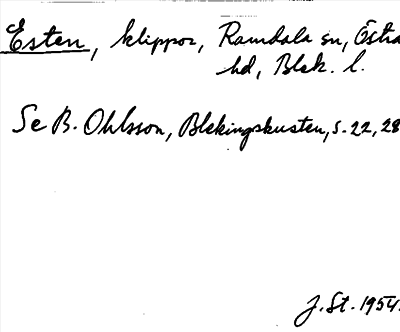 Esten, klippor, Ramdala sn, Östra
hd, Blek. l.
Se B. Ohlsson, Blekingskusten, s. 22, 28
J. St. 1954.